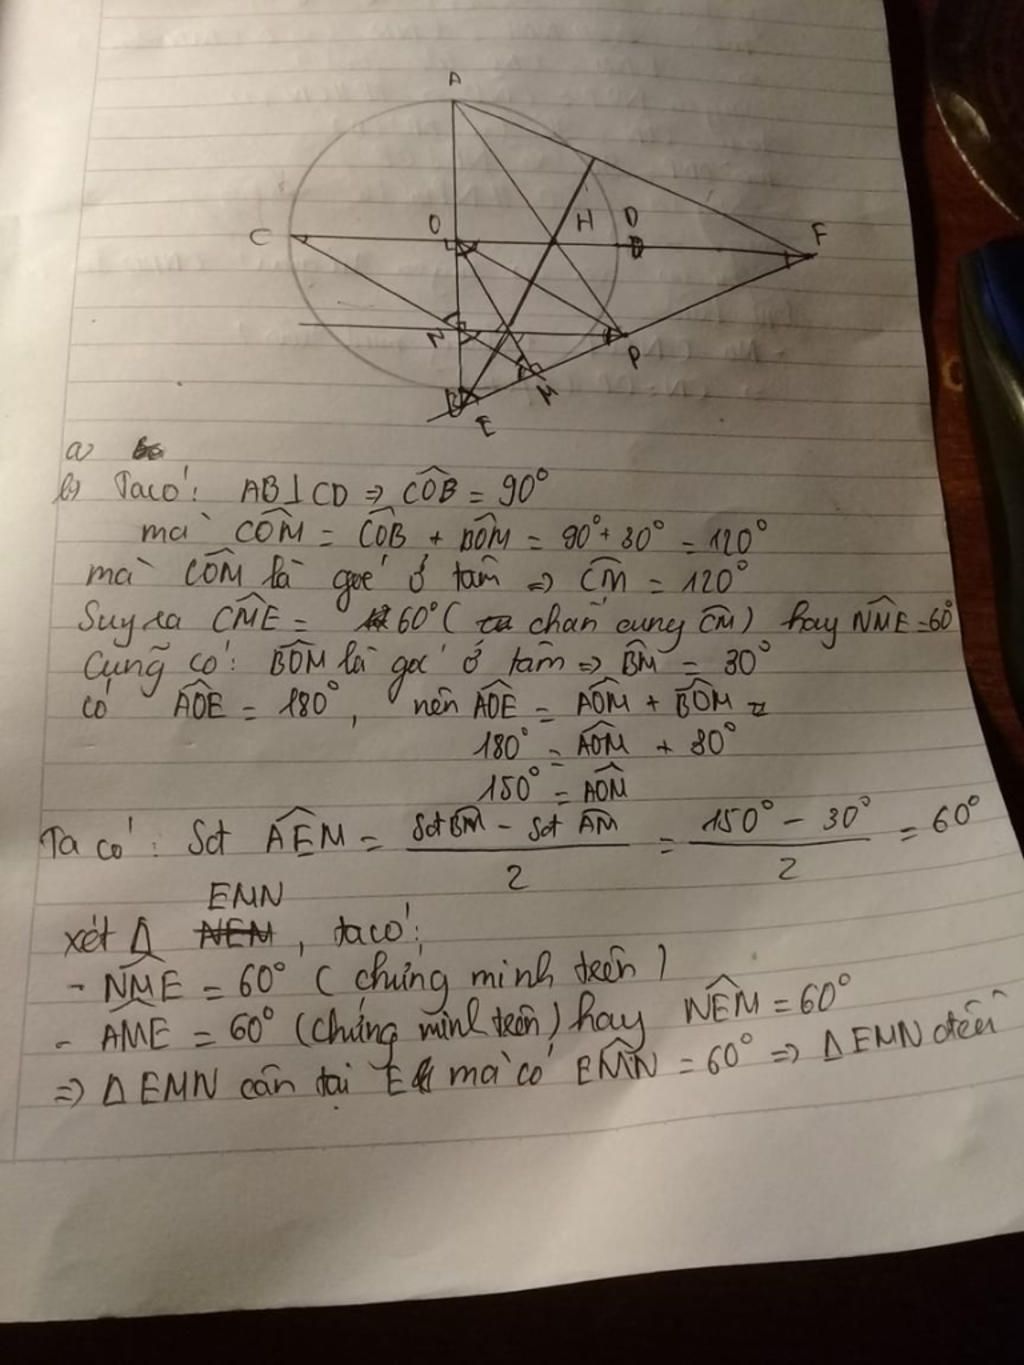 A
C
O
H
D
F
N
P
M
B
E
a)
b) Ta có: AB⊥CD ⇒ CÔB = 90°
mà CÔM = CÔB + BÔM = 90° + 30° = 120°
mà CÔM là góc ở tâm ⇒ CM = 120°
Suy ra CM̂E = 60° ( chắn cung CM) hay NM̂E = 60°
Cũng có: BÔM là góc ở tâm ⇒ BM = 30°
có AÔE = 180°, nên AÔE = AÔM + BÔM =
180° = AÔM + 30°
150° = AÔM
Ta có: Sđt AÊM = (Sđt BM - Sđt AM)/2 = (150° - 30°)/2 = 60°
EMN
xét Δ NEM, ta có:
- NM̂E = 60° (chứng minh trên)
- AM̂E = 60° (chứng minh trên) hay NÊM = 60°
⇒ Δ EMN cân tại E mà có EM̂N = 60° ⇒ Δ EMN đều